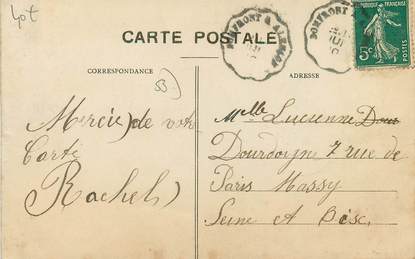 Lot
CARTE POSTALE
DOMFRONT A ALENÇON
DOMFRONT
RÉPUBLIQUE FRANÇAISE
5c
POSTES
CORRESPONDANCE
ADRESSE
53
Mercie de votre
Carte
Rachel
Melle Lucienne Dour
Dourdoigne 7 rue de
Paris Massy
Seine et Oise